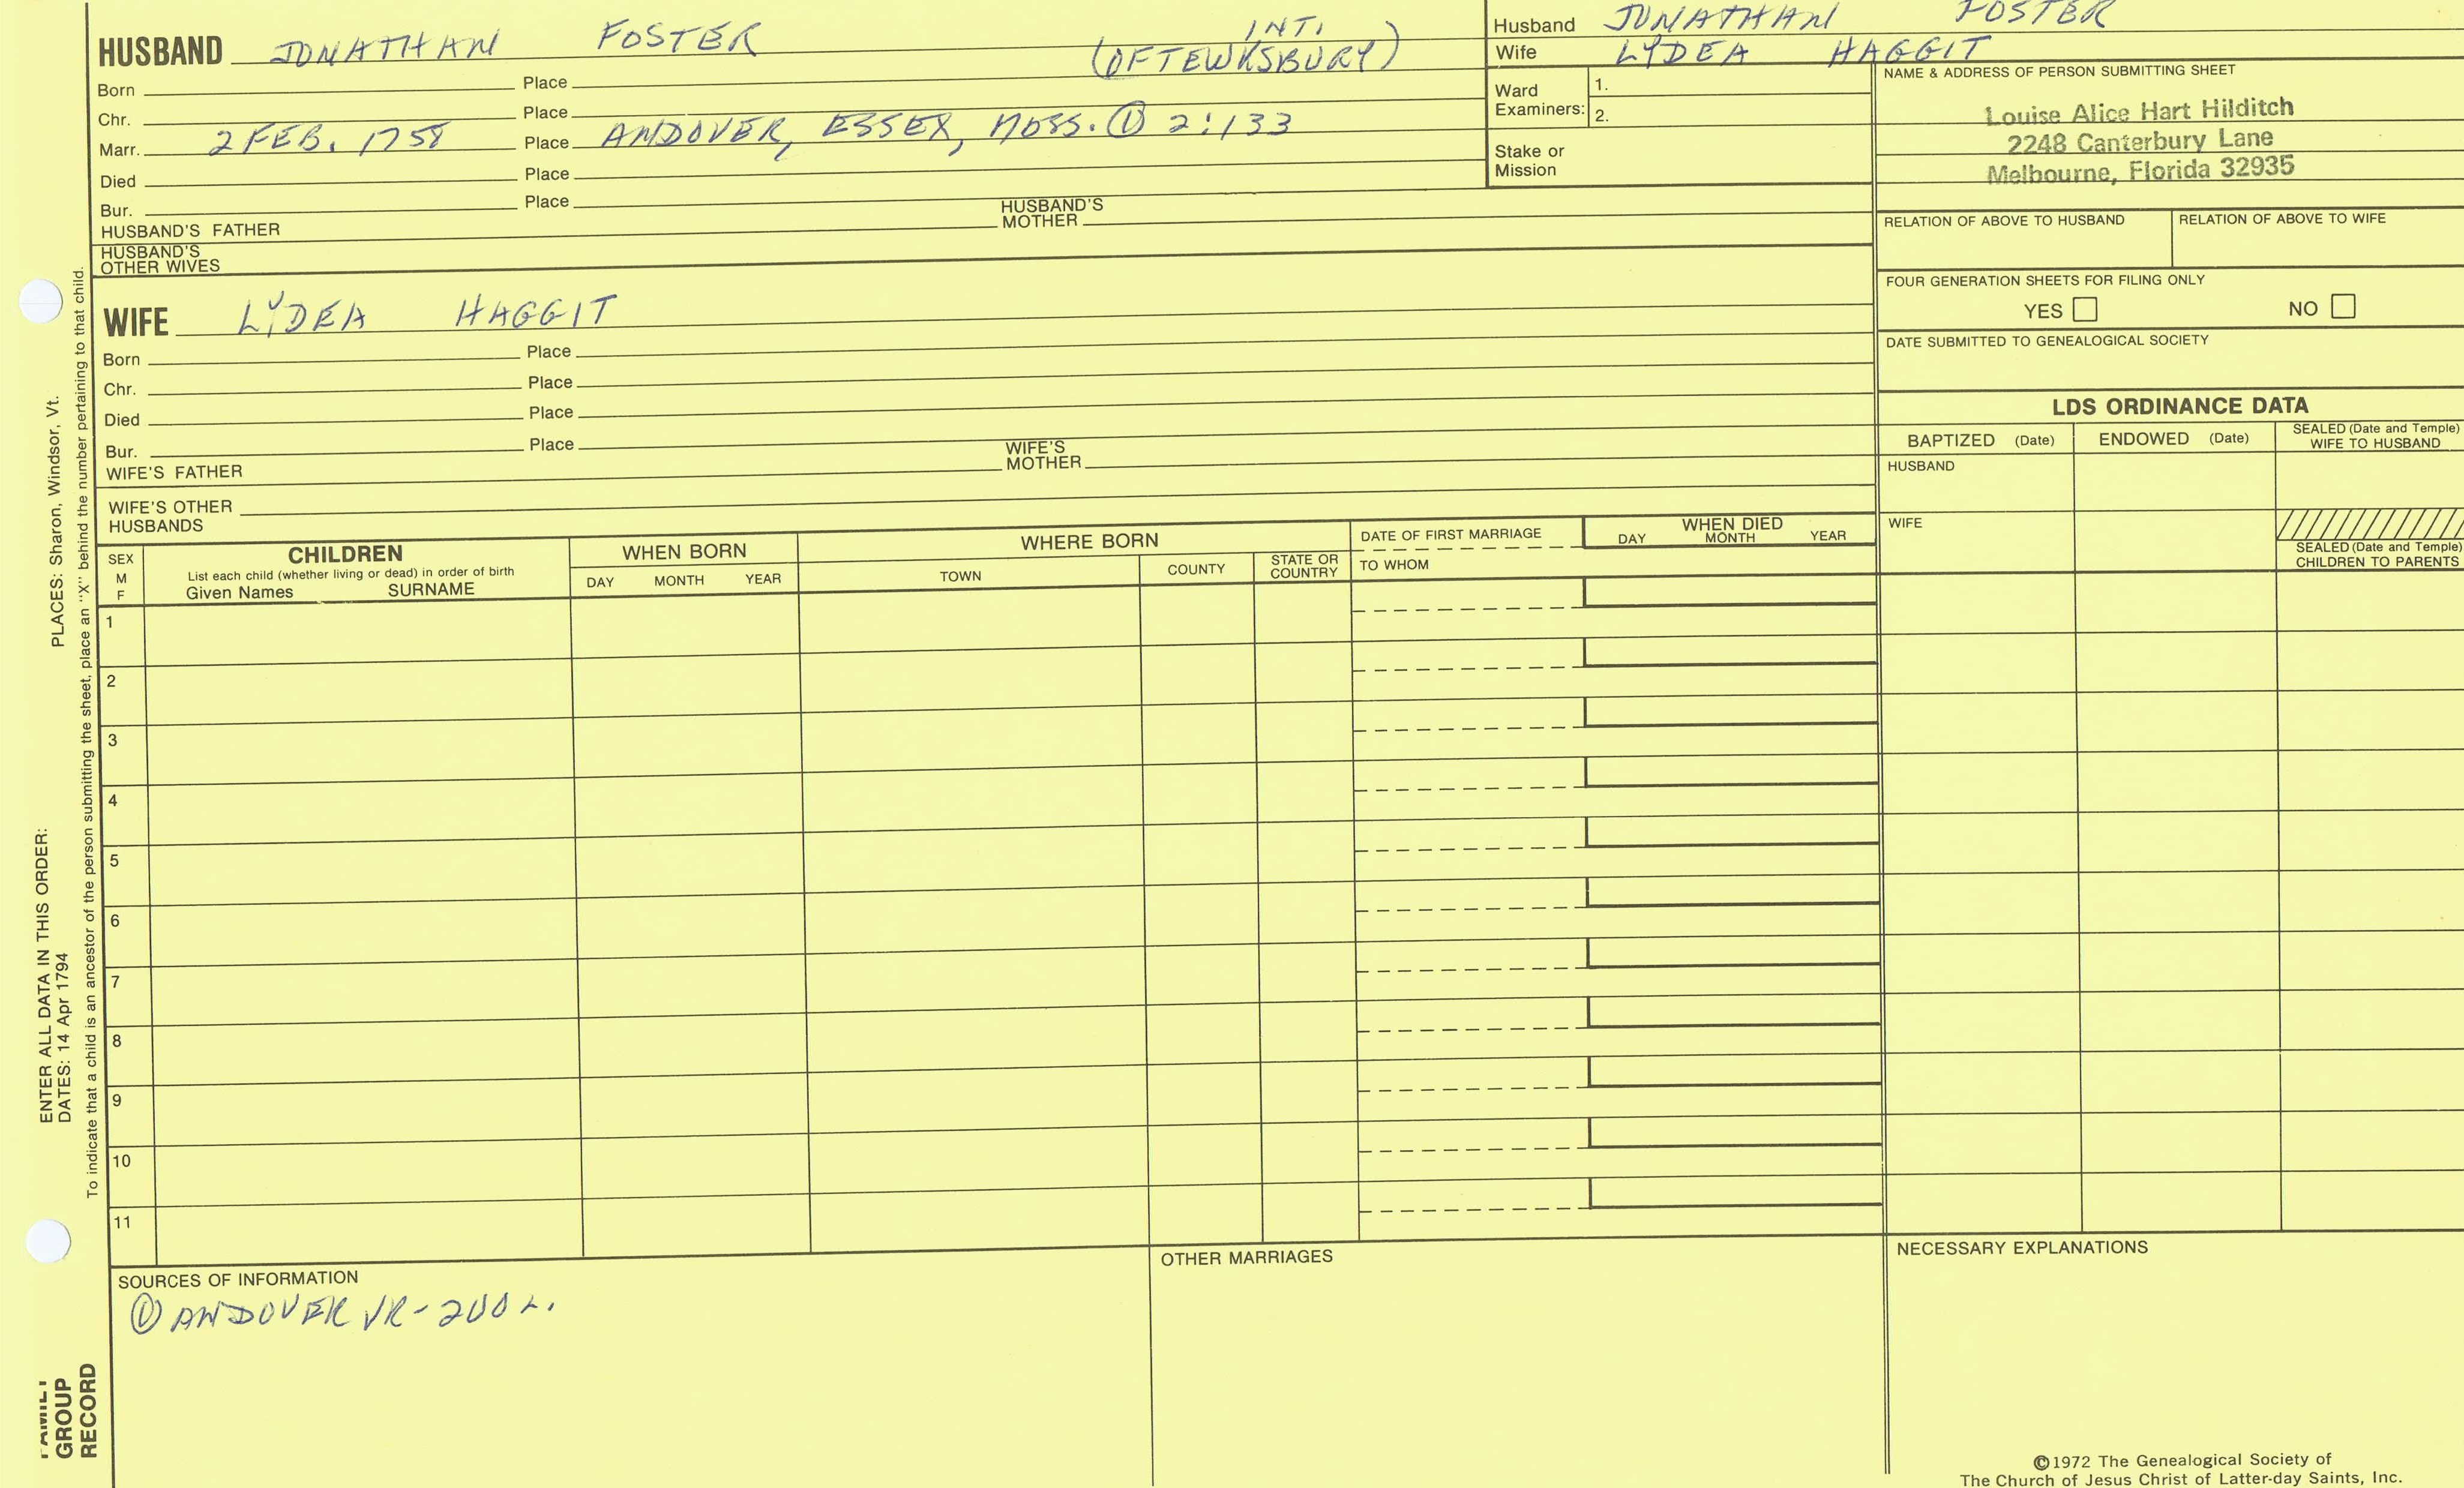 HUSBAND JONATHAN FOSTER INT. (OF TEWKSBURY)
Born Place
Chr. Place
Marr. 2 FEB. 1758 Place ANDOVER, ESSEX, MASS. ① 2:133
Died Place
Bur. Place
HUSBAND'S FATHER HUSBAND'S MOTHER
HUSBAND'S OTHER WIVES
WIFE LYDEA HAGGIT
Born Place
Chr. Place
Died Place
Bur. Place
WIFE'S FATHER WIFE'S MOTHER
WIFE'S OTHER HUSBANDS
Husband JONATHAN FOSTER
Wife LYDEA HAGGIT
Ward Examiners: 1.
2.
Stake or Mission
NAME & ADDRESS OF PERSON SUBMITTING SHEET
Louise Alice Hart Hilditch
2248 Canterbury Lane
Melbourne, Florida 32935
RELATION OF ABOVE TO HUSBAND RELATION OF ABOVE TO WIFE
FOUR GENERATION SHEETS FOR FILING ONLY
YES NO
DATE SUBMITTED TO GENEALOGICAL SOCIETY
LDS ORDINANCE DATA
BAPTIZED (Date) ENDOWED (Date) SEALED (Date and Temple) WIFE TO HUSBAND
HUSBAND
WIFE
SEALED (Date and Temple) CHILDREN TO PARENTS
SEX M F
CHILDREN
List each child (whether living or dead) in order of birth
Given Names SURNAME
WHEN BORN
DAY MONTH YEAR
WHERE BORN
TOWN COUNTY STATE OR COUNTRY
DATE OF FIRST MARRIAGE
TO WHOM
WHEN DIED
DAY MONTH YEAR
1
2
3
4
5
6
7
8
9
10
11
SOURCES OF INFORMATION
① ANDOVER VR-200 L.
OTHER MARRIAGES
NECESSARY EXPLANATIONS
©1972 The Genealogical Society of
The Church of Jesus Christ of Latter-day Saints, Inc.
ENTER ALL DATA IN THIS ORDER:
DATES: 14 Apr 1794 PLACES: Sharon, Windsor, Vt.
To indicate that a child is an ancestor of the person submitting the sheet, place an "X" behind the number pertaining to that child.
FAMILY
GROUP
RECORD